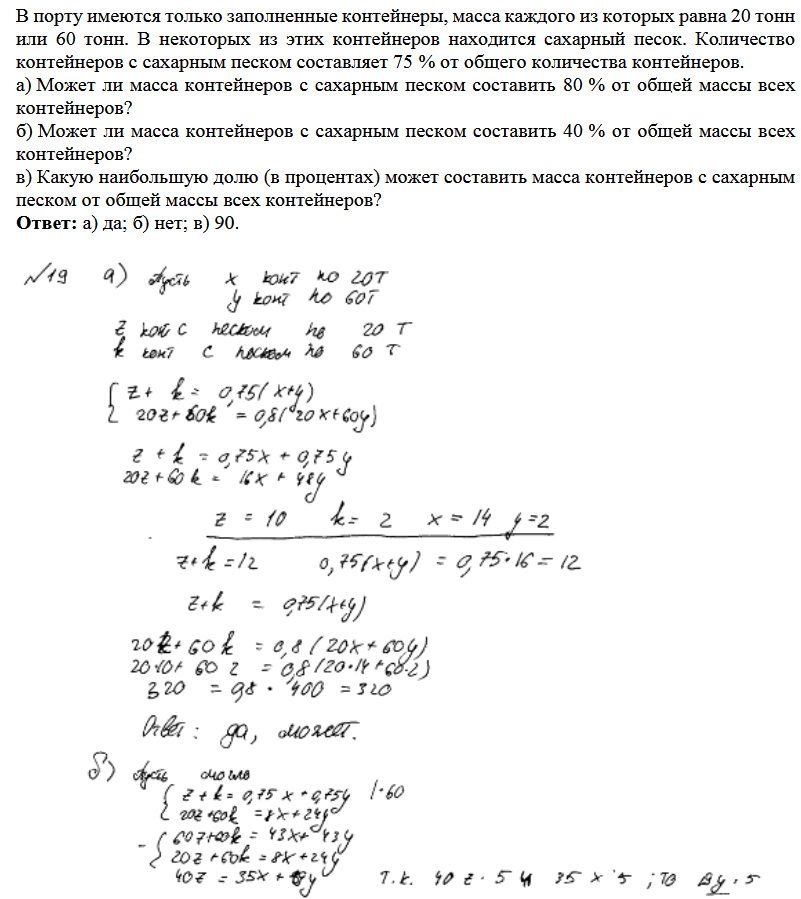 В порту имеются только заполненные контейнеры, масса каждого из которых равна 20 тонн
или 60 тонн. В некоторых из этих контейнеров находится сахарный песок. Количество
контейнеров с сахарным песком составляет 75 % от общего количества контейнеров.
а) Может ли масса контейнеров с сахарным песком составить 80 % от общей массы всех
контейнеров?
б) Может ли масса контейнеров с сахарным песком составить 40 % от общей массы всех
контейнеров?
в) Какую наибольшую долю (в процентах) может составить масса контейнеров с сахарным
песком от общей массы всех контейнеров?
Ответ: а) да; б) нет; в) 90.
№19 а) Пусть x конт по 20т
y конт по 60т
z кон с песком по 20 т
k конт с песком по 60 т
z + k = 0,75(x+y)
20z+60k = 0,8(20x+60y)
z + k = 0,75x + 0,75y
20z+60k = 16x + 48y
z = 10 k = 2 x = 14 y = 2
z+k = 12 0,75(x+y) = 0,75·16 = 12
z+k = 0,75(x+y)
20z+60k = 0,8(20x+60y)
20·10+ 60 2 = 0,8(20·14+60·2)
320 = 0,8 · 400 = 320
Ответ: да, может.
б) Пусть могло
z+k = 0,75x + 0,75y |·60
20z+60k = 8x+24y
60z+60k = 43x+ 43y
20z+60k = 8x+24y
40z = 35x + y т.к. 40z 5 и 35x 5 ; то y 5